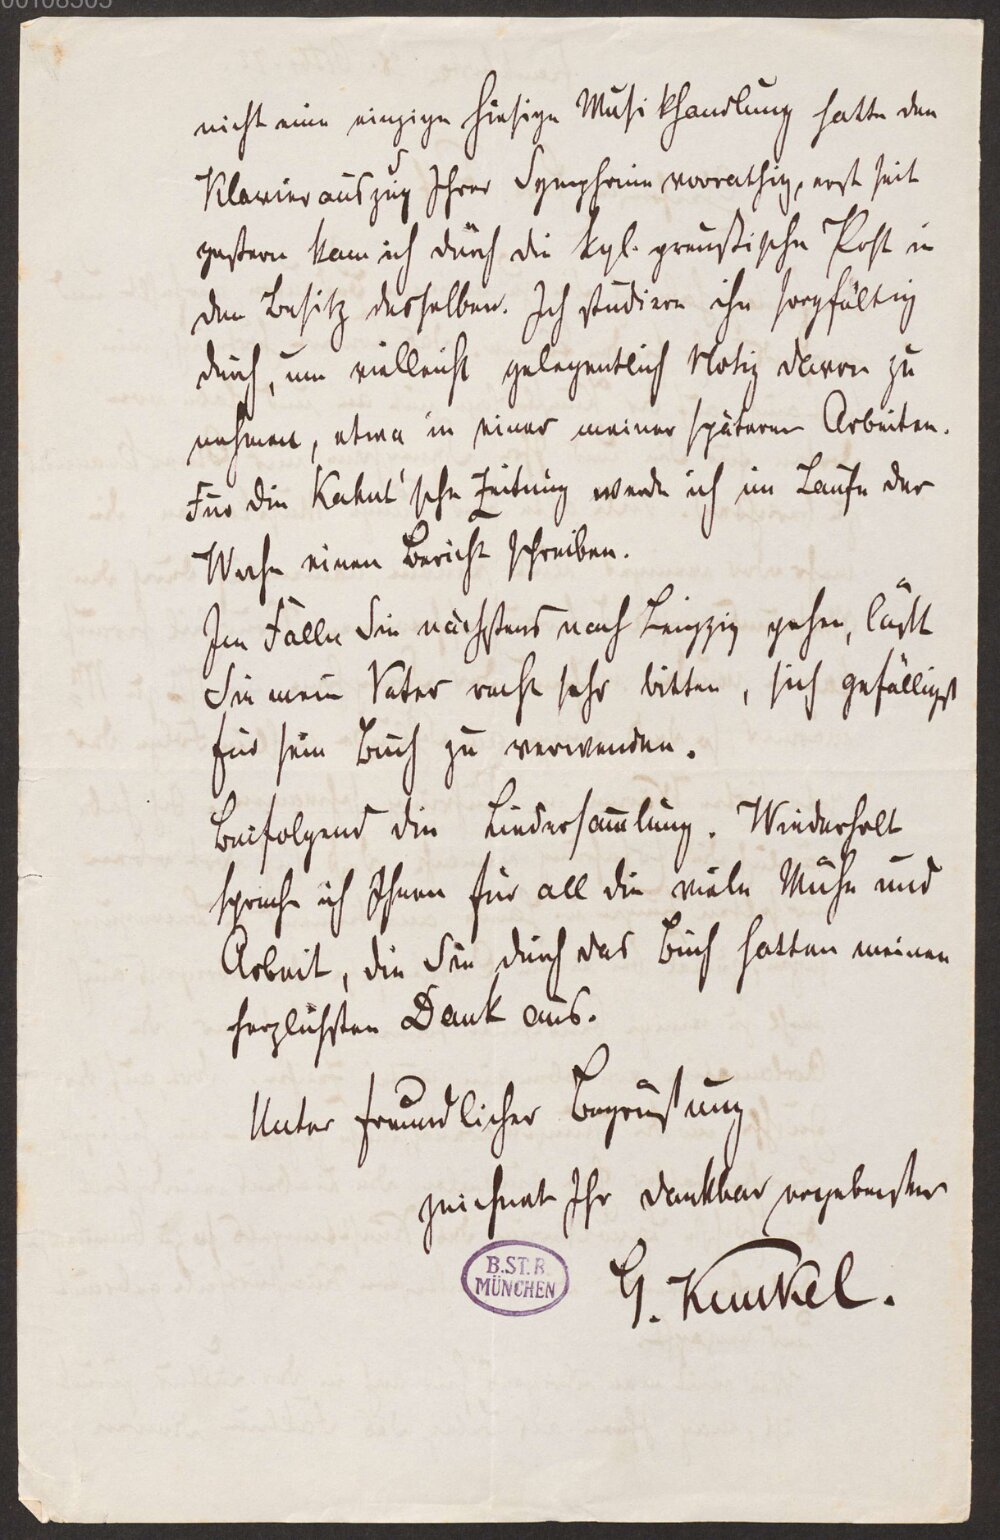 00108505
nicht eine einzige hiesige Musikhandlung hatte den
Klavierauszug Ihrer Symphonie vorrathig, erst seit
gestern kam ich durch die kgl. preußische Post in
den Besitz desselben. Ich studiere ihn sorgfältig
durch, um vielleicht gelegentlich Notiz davon zu
nehmen, etwa in einer meiner späteren Arbeiten.
Für die Kahnt'sche Zeitung werde ich im Laufe der
Woche einen Bericht schreiben.
Im Falle Sie nächstens nach Leipzig gehen, läßt
Sie mein Vater recht sehr bitten, sich gefälligst
für sein Buch zu verwenden.
Beifolgend die Liedersammlung. Wiederholt
spreche ich Ihnen für all die viele Mühe und
Arbeit, die Sie durch das Buch hatten meinen
herzlichsten Dank aus.
Unter freundlicher Begrüßung
zeichnet Ihr dankbar ergebenster
G. Kunkel.
B.ST.B.
MÜNCHEN